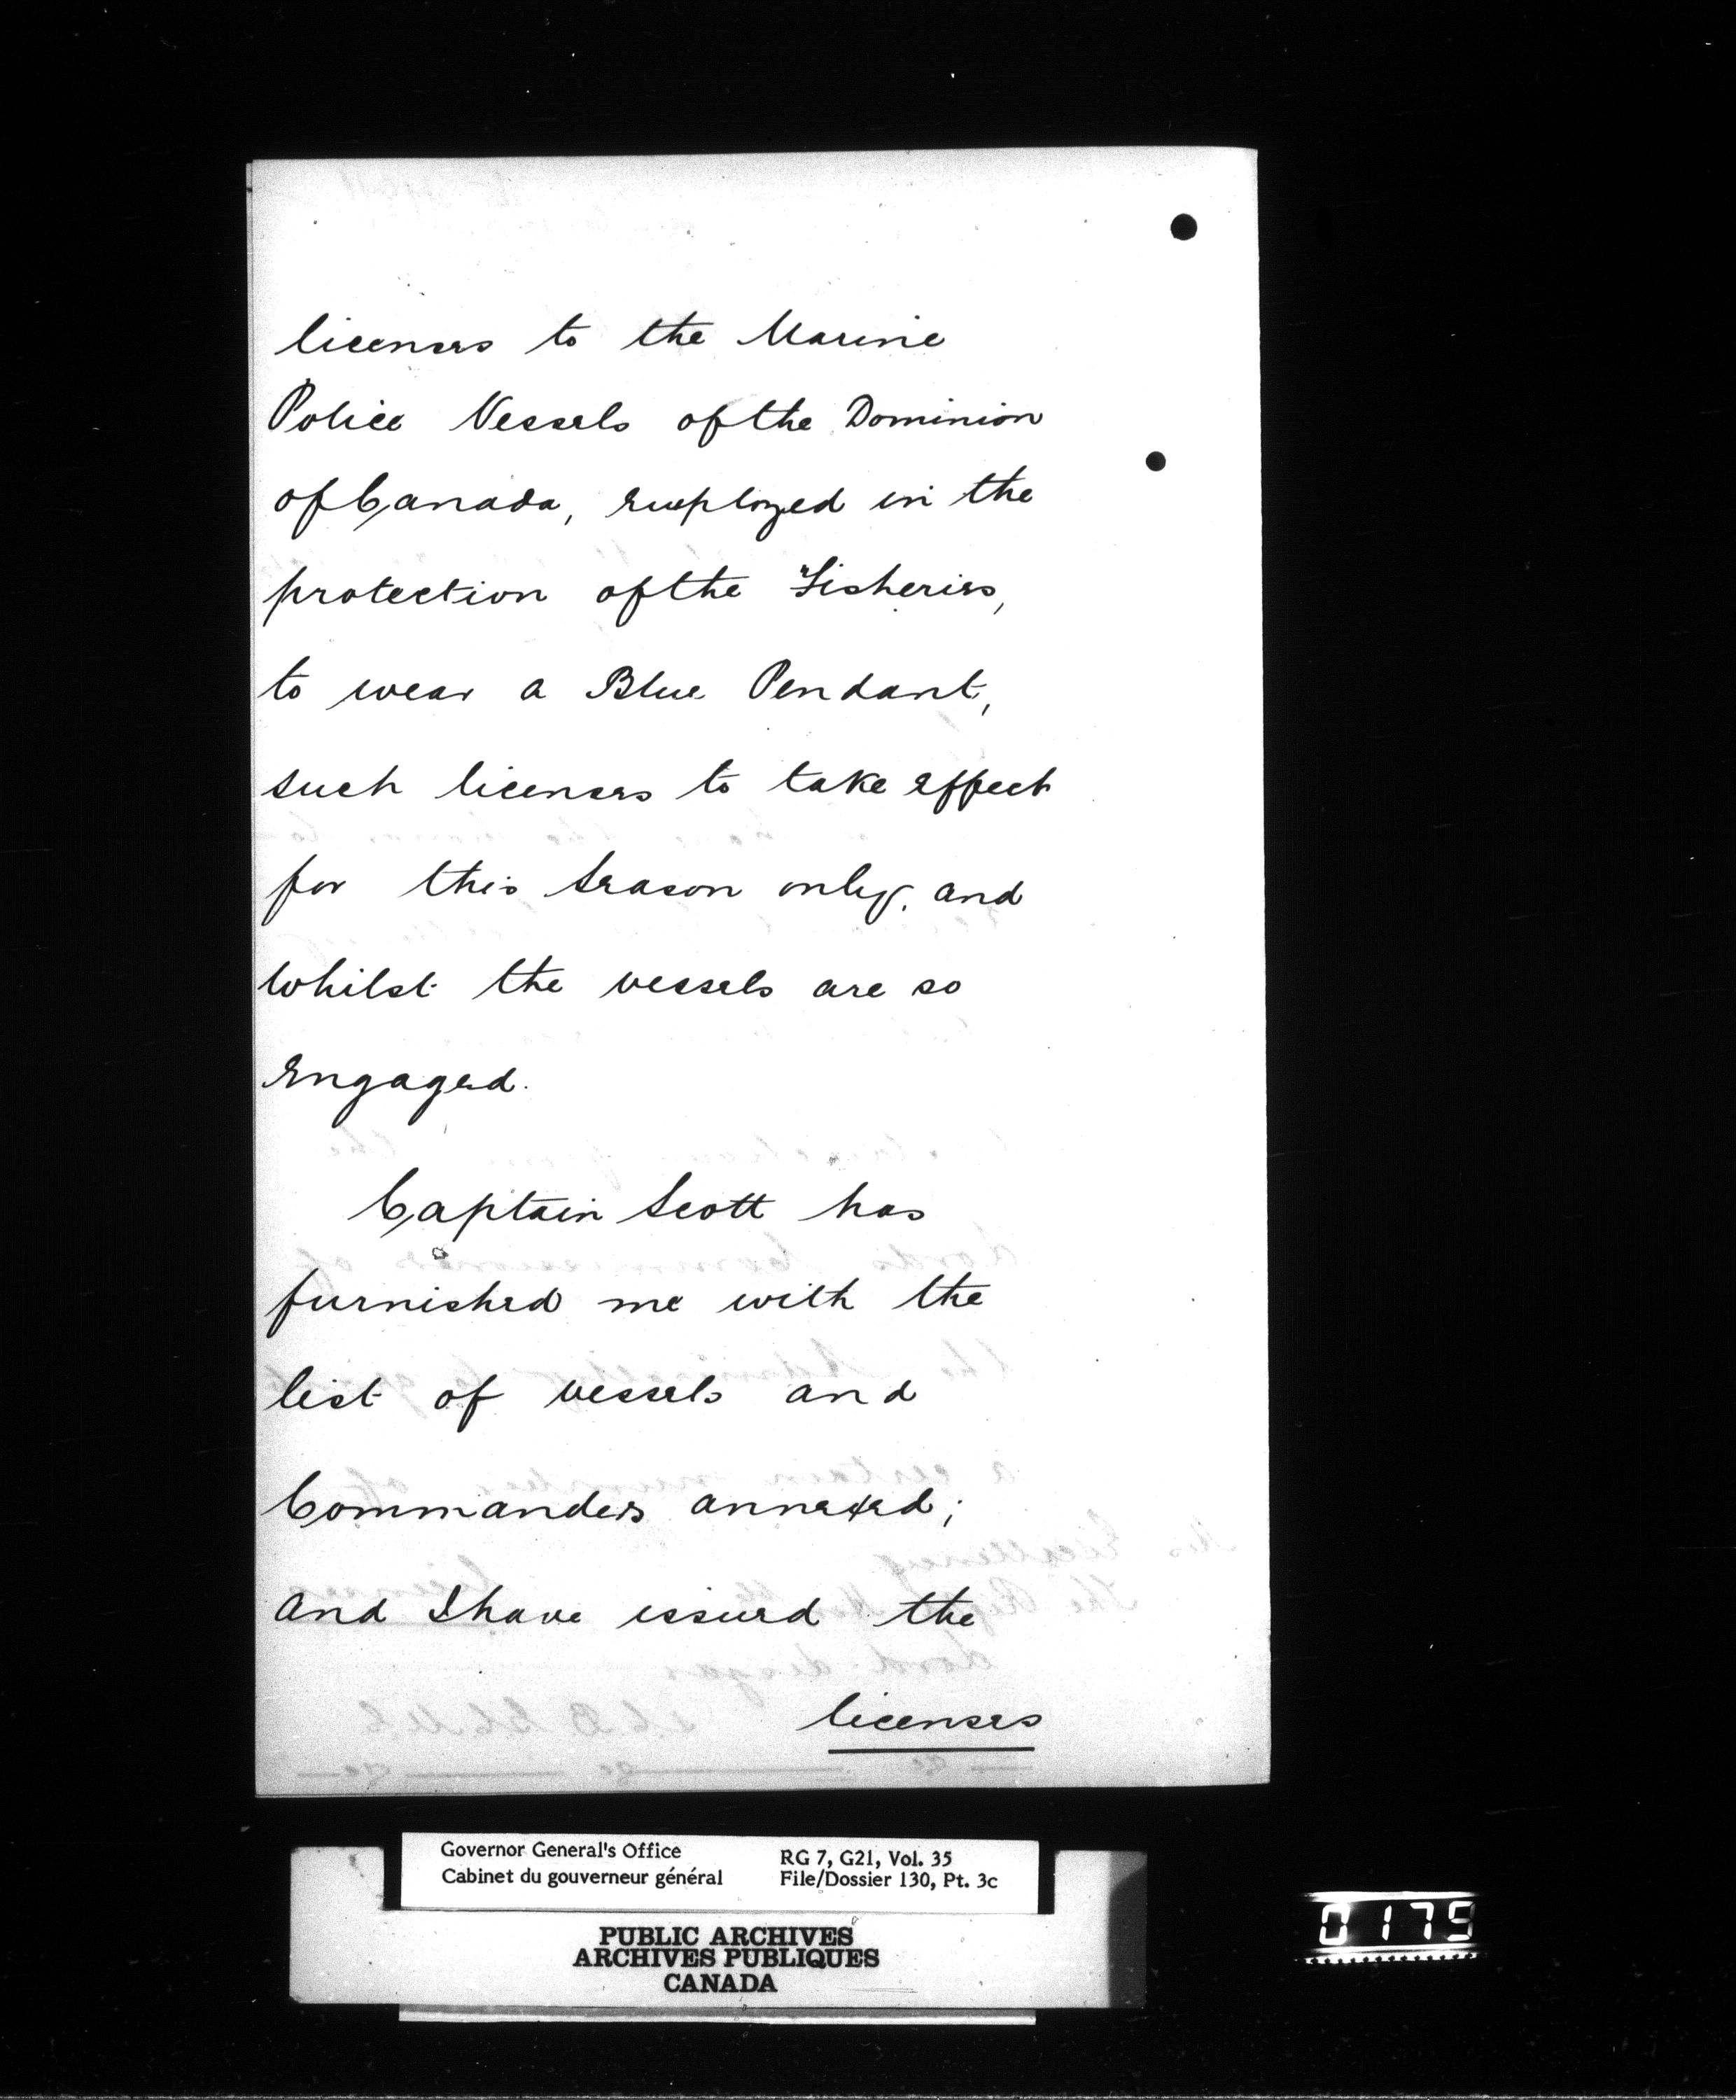 licenses to the Marine
Police Vessels of the Dominion
of Canada, employed in the
protection of the Fisheries,
to wear a Blue Pendant,
such licenses to take effect
for this Season only, and
whilst the vessels are so
engaged.
Captain Scott has
furnished me with the
list of vessels and
Commanders annexed;
and I have issued the
licenses
Governor General's Office
Cabinet du gouverneur général
RG 7, G21, Vol. 35
File/Dossier 130, Pt. 3c
PUBLIC ARCHIVES
ARCHIVES PUBLIQUES
CANADA
0175